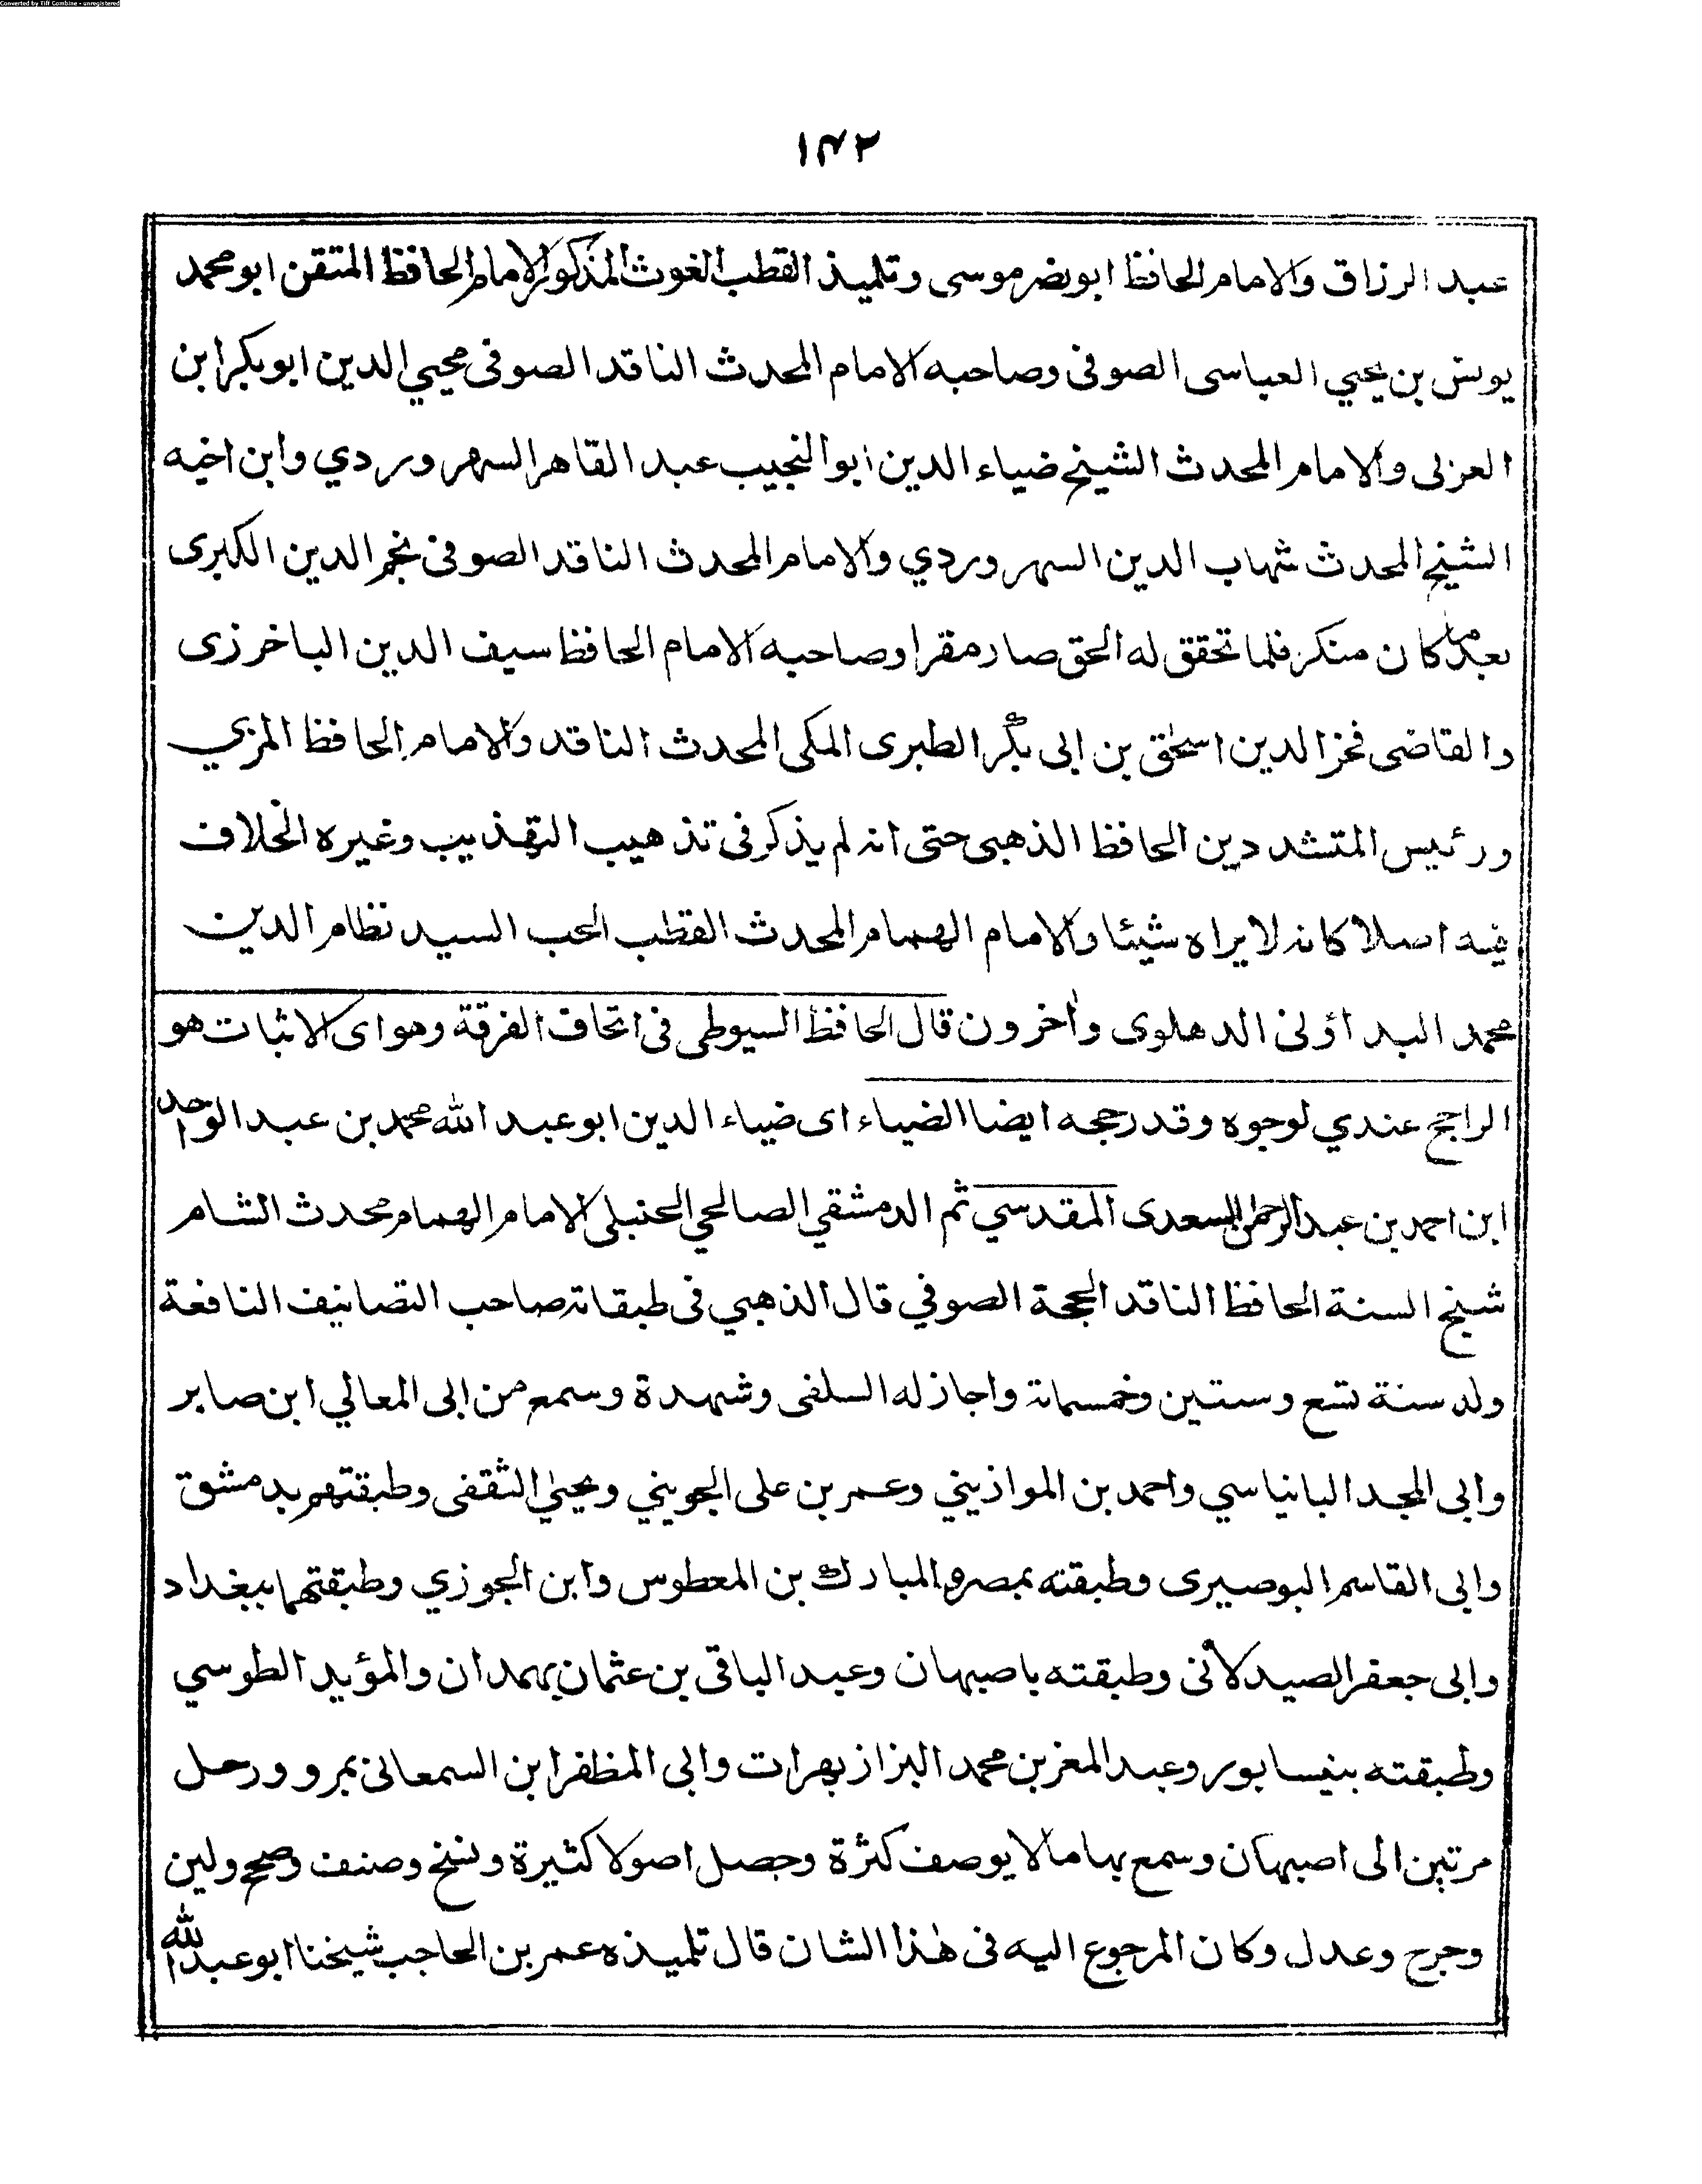 Converted by Tiff Combine - unregistered
١٤٢
عبد الرزاق والامام الحافظ ابونصر موسى وتلميذ القطب الغوث المذكور الامام الحافظ المتقن ابو محمد
يونس بن يحيي العباسى الصوفى وصاحبه الامام المحدث الناقد الصوفى محيي الدين ابوبكر ابن
العربى والامام المحدث الشيخ ضياء الدين ابو النجيب عبد القاهر السهروردي وابن اخيه
الشيخ المحدث شهاب الدين السهروردي والامام المحدث الناقد الصوفى نجم الدين الكبرى
بعد ما كان منكر فلما تحقق له الحق صار مقرا وصاحبه الامام الحافظ سيف الدين الباخرزى
والقاضى فخر الدين اسحٰق بن ابى بكر الطبرى المكى المحدث الناقد والامام الحافظ المزي
ورئيس المتشددين الحافظ الذهبى حتى انه لم يذكر فى تذهيب التهذيب وغيره الخلاف
فيه اصلا كانه لا يراه شيئا والامام الهمام المحدث القطب المحب السيد نظام الدين
محمد البداؤنى الدهلوى واٰخرون قال الحافظ السيوطى فى اتحاف الفرقة وهو اى الاثبات هو
الراجح عندي لوجوه وقد رجحه ايضا الضياء اى ضياء الدين ابو عبد الله محمد بن عبد الواحد
ابن احمد بن عبد الرحمن السعدى المقدسي ثم الدمشقي الصالحي الحنبلى الامام الهمام محدث الشام
شيخ السنة الحافظ الناقد الحجة الصوفي قال الذهبي فى طبقاته صاحب التصانيف النافعة
ولد سنة تسع وستين وخمسمائة واجاز له السلفى وشهدة وسمع من ابى المعالي ابن صابر
وابى المجد البانياسي واحمد بن الموازيني وعمر بن على الجويني ويحيىٰ الثقفى وطبقتهم بدمشق
وابى القاسم البوصيرى وطبقته بمصر والمبارك بن المعطوس وابن الجوزي وطبقتهما ببغداد
وابى جعفر الصيدلانى وطبقته باصبهان وعبد الباقى بن عثمان بهمدان والمؤيد الطوسي
وطبقته بنيسابور وعبد المعز بن محمد البزاز بهرات وابى المظفر ابن السمعانى بمرو ورحل
مرتين الى اصبهان وسمع بها ما لا يوصف كثرة وحصل اصولا كثيرة ونسخ وصنف وصحح ولين
وجرح وعدل وكان المرجوع اليه فى هٰذا الشان قال تلميذه عمر بن الحاجب شيخنا ابو عبد الله